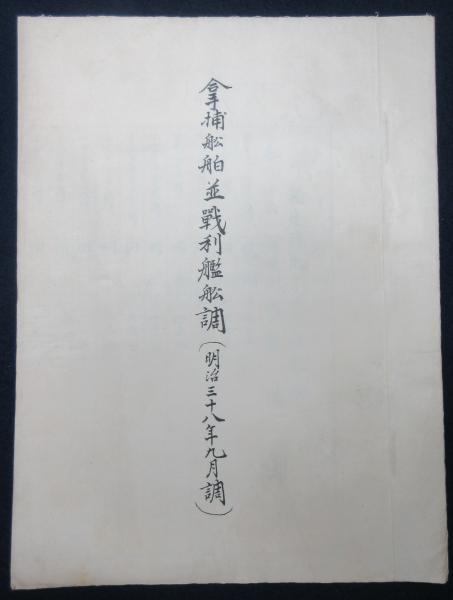 拿捕舩舶並戰利艦舩調(明治三十八年九月調)